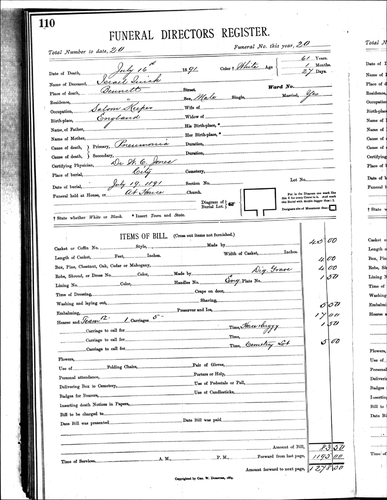 110
FUNERAL DIRECTORS REGISTER.
Total Number to date, 20 Funeral No. this year, 20
Date of Death, July 16th 1891 Color † White Age 61 Years 1 Months 27 Days
Name of Deceased, Israel
Place of death, Bennett Street, Ward No.
Residence, Sex, Male Single, Married, Yes
Occupation, Saloon Keeper Wife of
Birth-place, England Widow of
Name of Father, His Birth-place, *
Name of Mother, Her Birth-place, *
Cause of death, Primary, Pneumonia Duration,
Cause of death, Secondary, Duration,
Certifying Physician, Dr. W. C. Jones
Place of burial, City Cemetery,
Date of burial, July 19, 1891 Section No. Lot No.
Funeral held at House, or At House Church
Diagram of Burial Lot.
† State whether White or Black. * Insert Town and State.
ITEMS OF BILL. (Cross out items not furnished.)
Casket or Coffin No. Style, Made by 45 00
Length of Casket, Feet, Inches. Width of Casket, Inches.
Box, Pine, Chestnut, Oak, Cedar or Mahogany, 4 00
Robe, Shroud, or Dress No. Color, Made by Dig Grave 4 00
Lining No. Color, Handles No. Eng. Plate No. 1 50
Time of Dressing, Crape on door,
Washing and laying out, Shaving,
Embalming, Preserver and Ice, 5 50
Hearse and Team 12- 1 Carriages 5- 17 00
Carriages to call for Time, Hacs buggy 1 50
Carriage to call for Time,
Carriage to call for Time, Cemetery Lot 5 00
Flowers,
Use of Folding Chairs, Pair of Gloves,
Personal attendance, Porters or Help,
Delivering Box to Cemetery, Use of Pedestals or Pall,
Badges for Bearers, Use of Candlesticks,
Inserting death Notices in Papers,
Bill to be charged to
Date Bill was presented Date Bill was paid
Amount of Bill, 83 50
Time of Services, A. M., P. M., Forward from last page, 1195 00
Amount forward to next page, 1278 50